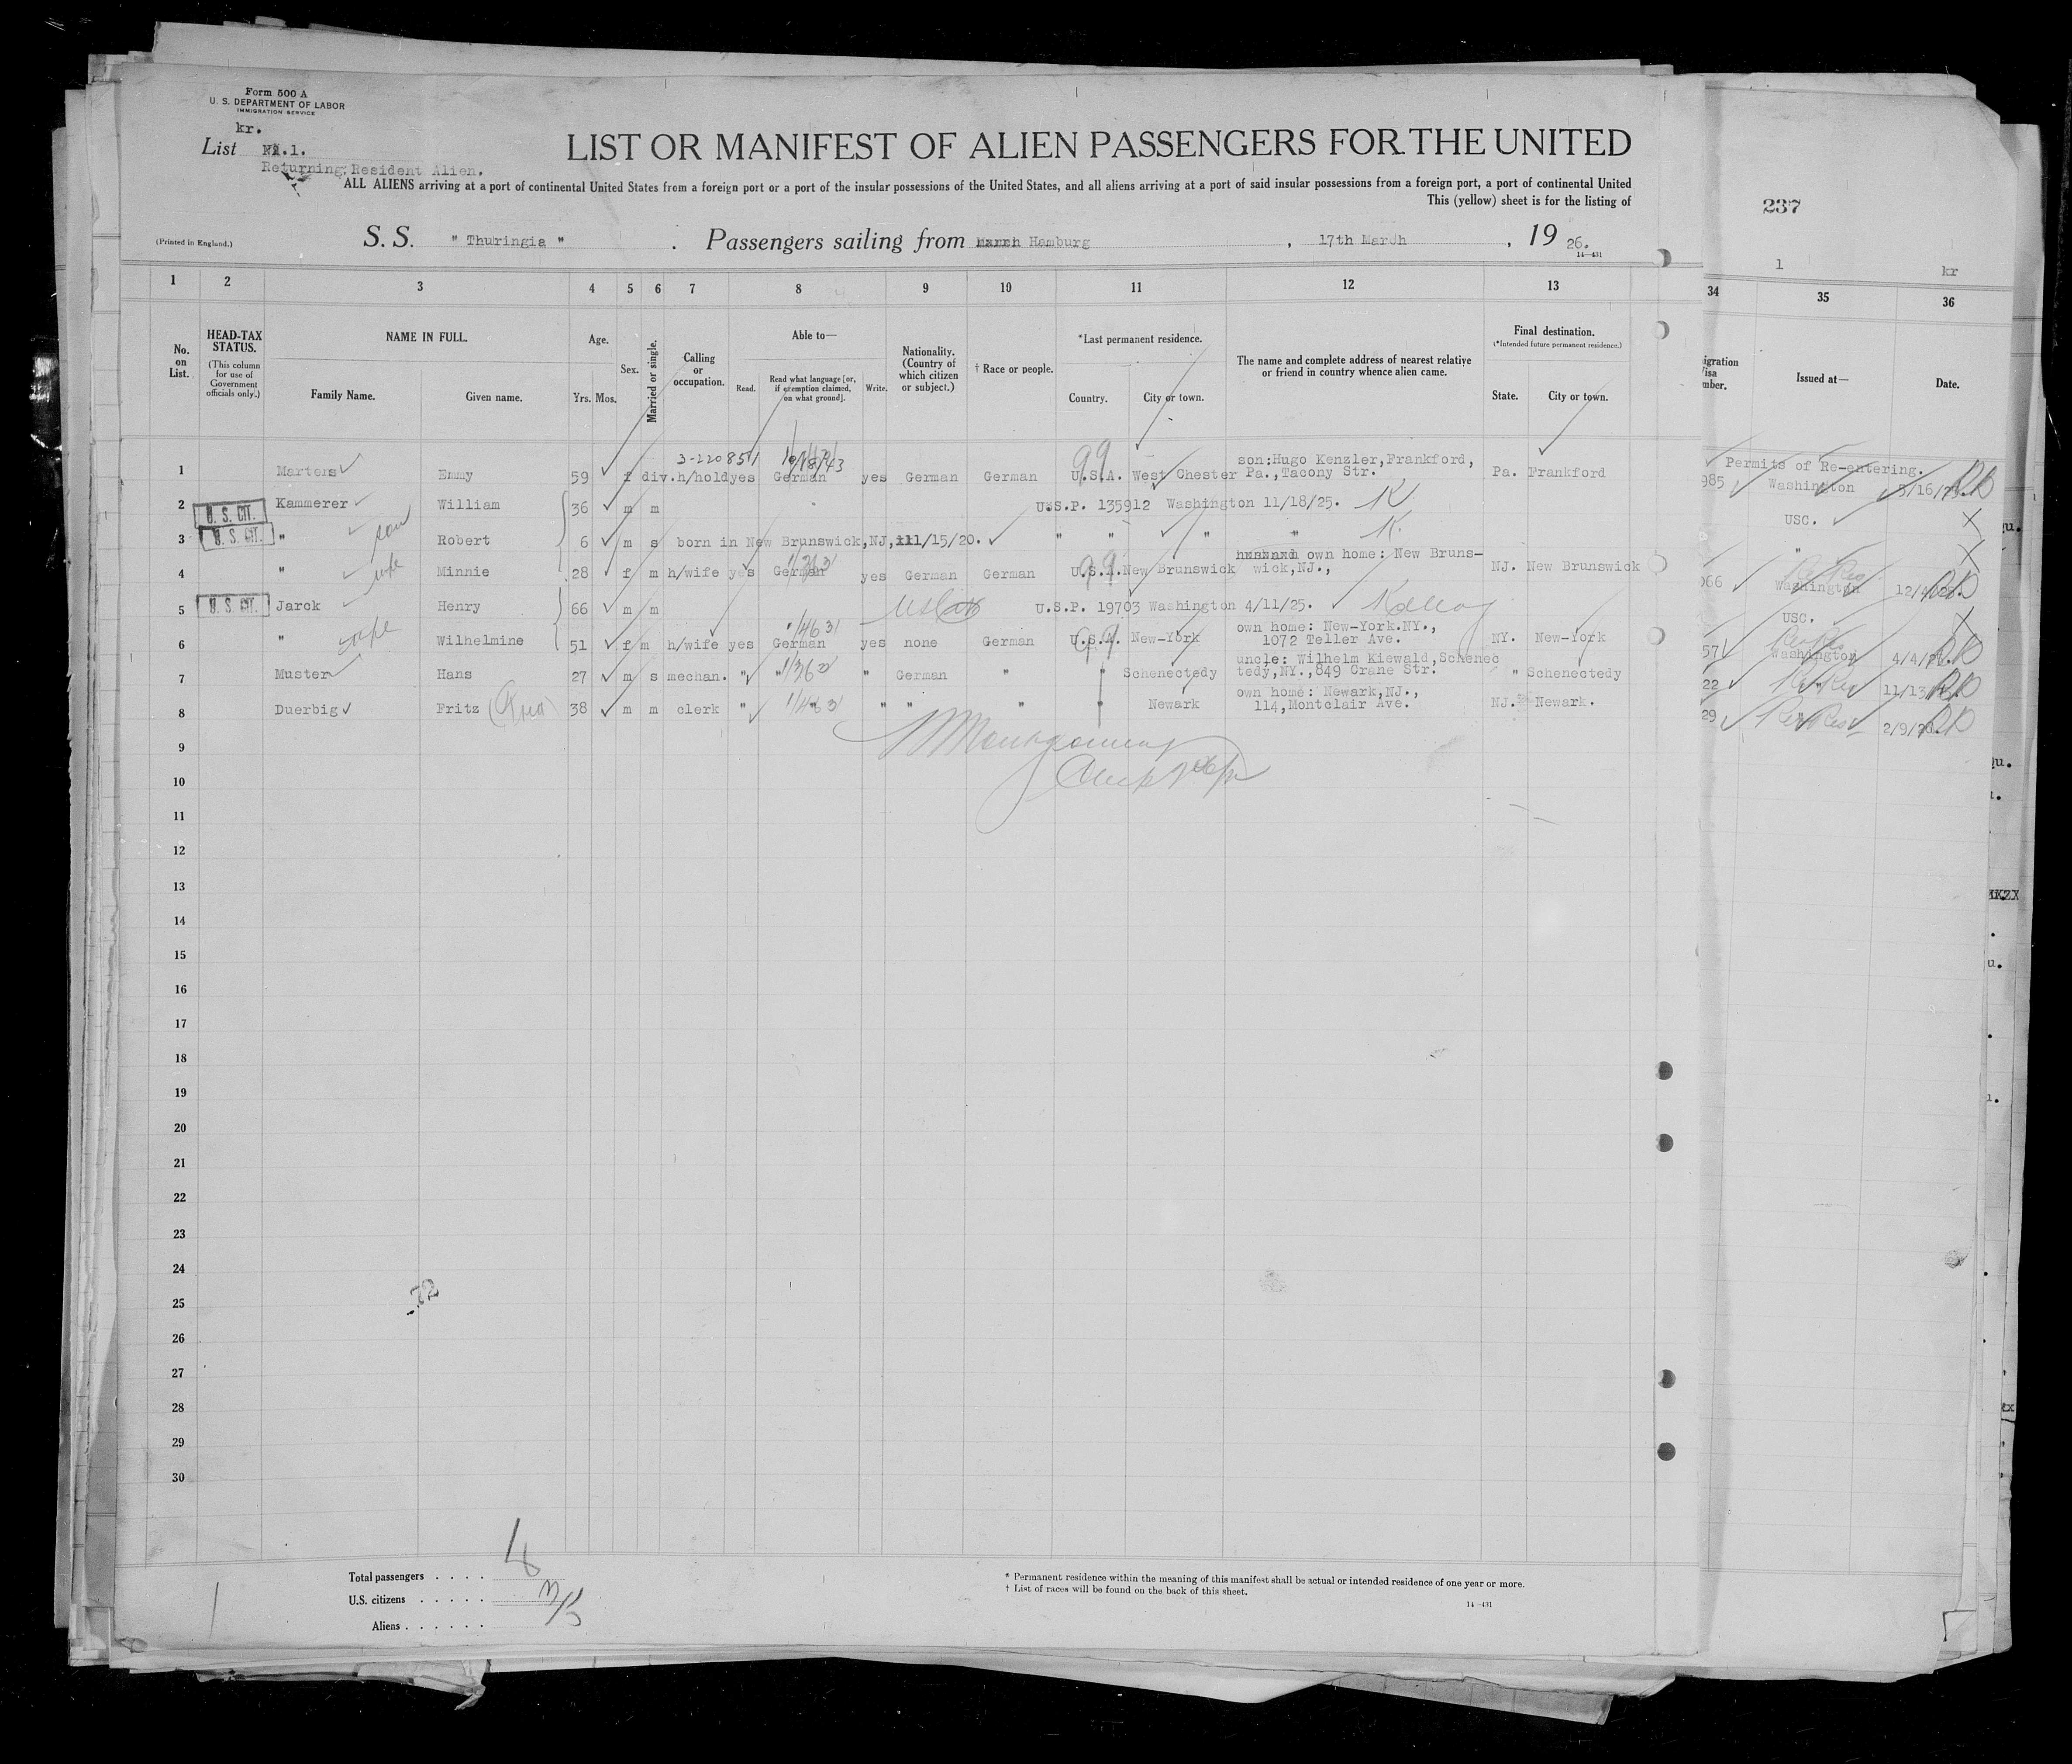 Form 500 A
U. S. DEPARTMENT OF LABOR
IMMIGRATION SERVICE
kr.
List 1.
Returning Resident Alien.
LIST OR MANIFEST OF ALIEN PASSENGERS FOR THE UNITED
ALL ALIENS arriving at a port of continental United States from a foreign port or a port of the insular possessions of the United States, and all aliens arriving at a port of said insular possessions from a foreign port, a port of continental United
This (yellow) sheet is for the listing of
237
(Printed in England.)
S. S. " Thuringia " . Passengers sailing from Hamburg , 17th March , 19 26.
14—431
1 kr
1 2 3 4 5 6 7 8 9 10 11 12 13 34 35 36
No. on List.
HEAD-TAX STATUS.
(This column for use of Government officials only.)
NAME IN FULL.
Family Name. Given name.
Age.
Yrs. Mos.
Sex.
Married or single.
Calling or occupation.
Able to—
Read. Read what language [or, if exemption claimed, on what ground]. Write.
Nationality. (Country of which citizen or subject.)
† Race or people.
*Last permanent residence.
Country. City or town.
The name and complete address of nearest relative or friend in country whence alien came.
Final destination.
(*Intended future permanent residence.)
State. City or town.
Issued at—
Date.
3-220851 10/18/43
son:Hugo Kenzler,Frankford,
1 Marters Emmy 59 f div. h/hold yes German yes German German U.S.A. West Chester Pa.,Tacony Str. Pa. Frankford
Permits of Re-entering.
985 Washington
2 U. S. CIT. Kammerer William 36 m m U.S.P. 135912 Washington 11/18/25. K USC.
3 U. S. CIT. " son Robert 6 m s born in New Brunswick,NJ, 11/15/20. " " " " K. "
own home: New Bruns-
4 " wife Minnie 28 f m h/wife yes German yes German German U.S.A. New Brunswick wick,NJ., NJ. New Brunswick 066 Washington
5 U. S. CIT. Jarck Henry 66 m m U.S.P. 19703 Washington 4/11/25. USC.
own home: New-York.NY.,
6 " wife Wilhelmine 51 f m h/wife yes German yes none German U.S.A. New-York 1072 Teller Ave. NY. New-York 57 Washington
uncle: Wilhelm Kiewald,Schenec
7 Muster Hans 27 m s mechan. " " " German " " Schenectedy tedy,NY.,849 Crane Str. " Schenectedy 22
own home: Newark,NJ.,
8 Duerbig Fritz 38 m m clerk " " " " " " Newark 114,Montclair Ave. NJ. Newark. 29
9
10
11
12
13
14
15
16
17
18
19
20
21
22
23
24
25
26
27
28
29
30
Total passengers . . . .
U.S. citizens . . . . . .
Aliens . . . . . .
* Permanent residence within the meaning of this manifest shall be actual or intended residence of one year or more.
† List of races will be found on the back of this sheet.
14—431